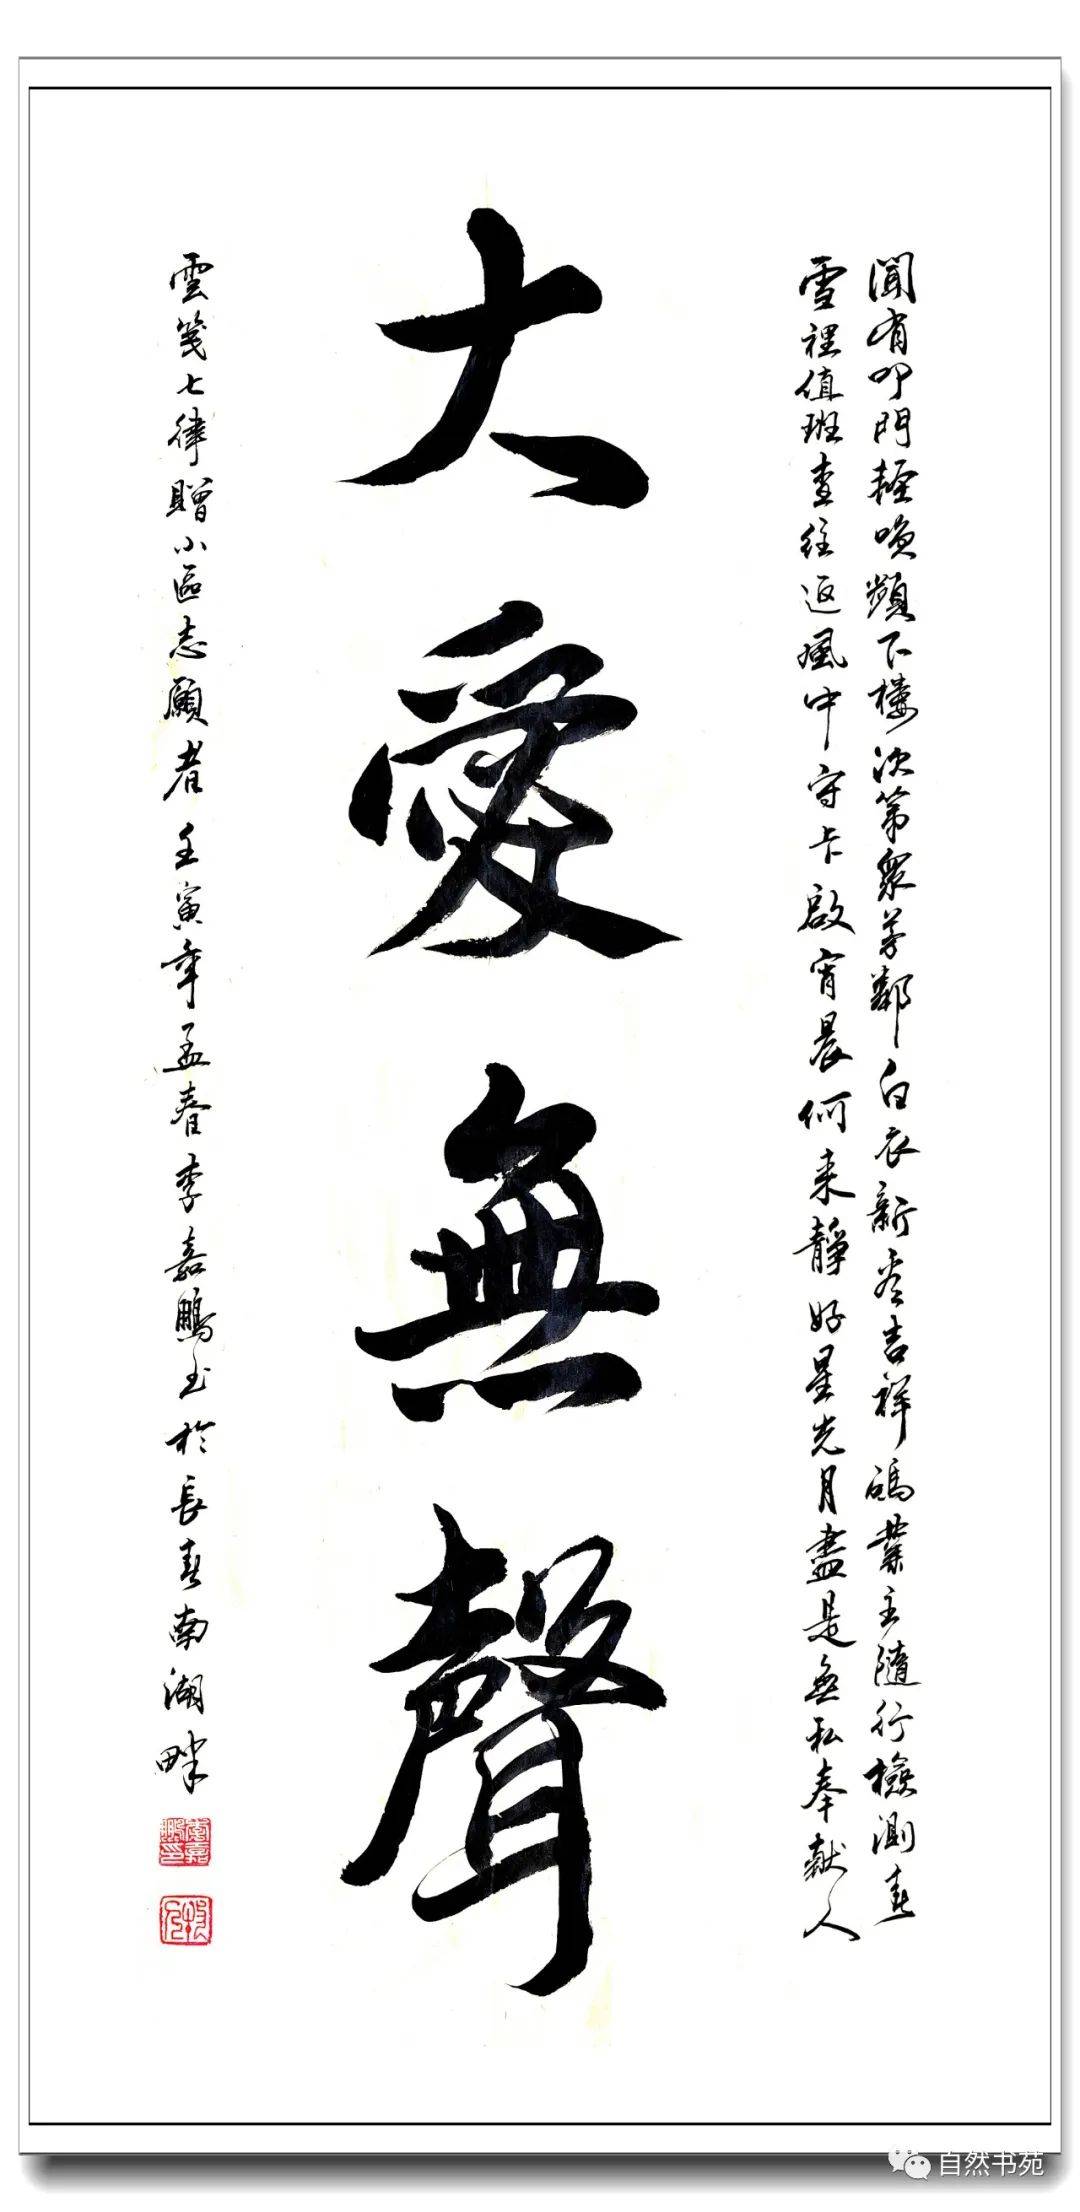 聞有叩門輕喚頻下樓次第衆芳鄰白衣新吉祥碼業主隨行檢測春
雪裡值班查往返風中守卡啟宵晨何来靜好星光月盡是無私奉獻人
大愛無聲
雲箋七律贈小區志願者壬寅年孟春李嘉鵬书於長春南湖畔
李嘉鵬印
自然书苑